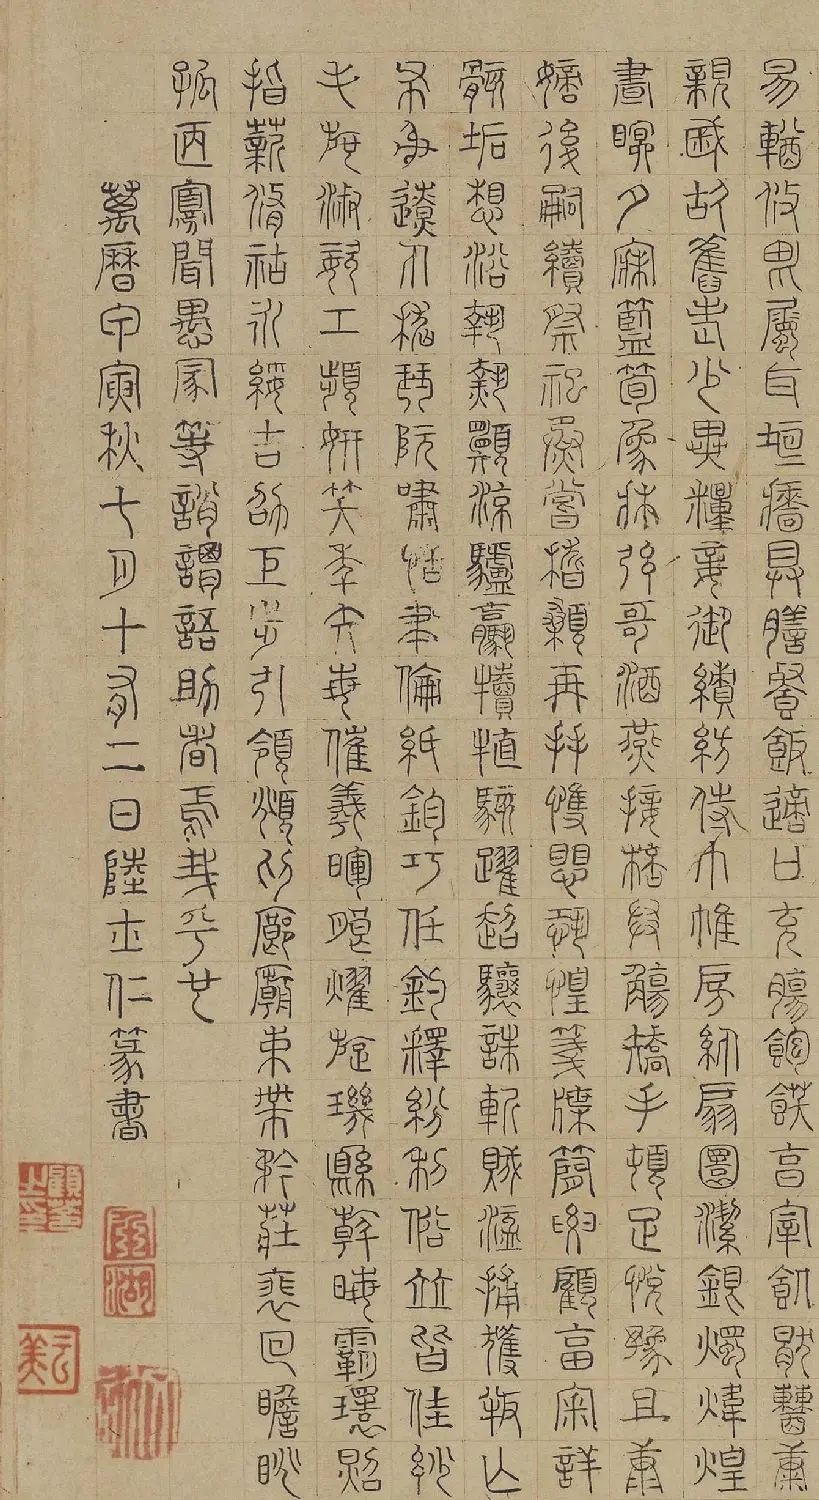 易輶攸畏屬耳垣牆具膳餐飯適口充腸飽飫享宰飢厭糟糠
親戚故舊老少異糧妾御績紡侍巾帷房紈扇圓潔銀燭煒煌
晝眠夕寐藍筍象床弦歌酒燕接杯舉觴矯手頓足悅豫且康
嫡後嗣續祭祀烝嘗稽顙再拜悚懼恐惶牋牒簡要顧答審詳
骸垢想浴執熱願涼驢騾犢特駭躍超驤誅斬賊盜捕獲叛亡
布射遼丸嵇琴阮嘯恬筆倫紙鈞巧任釣釋紛利俗並皆佳妙
毛施淑姿工顰妍笑年矢每催羲暉朗耀旋璣縣斡晦霸環照
指薪脩祜永綏吉劭矩步引領俯仰廊廟束帶矜莊裴回瞻眺
孤陋寡聞愚蒙等誚謂語助者焉哉乎也
萬曆甲寅秋七月十有二日陸士仁篆書